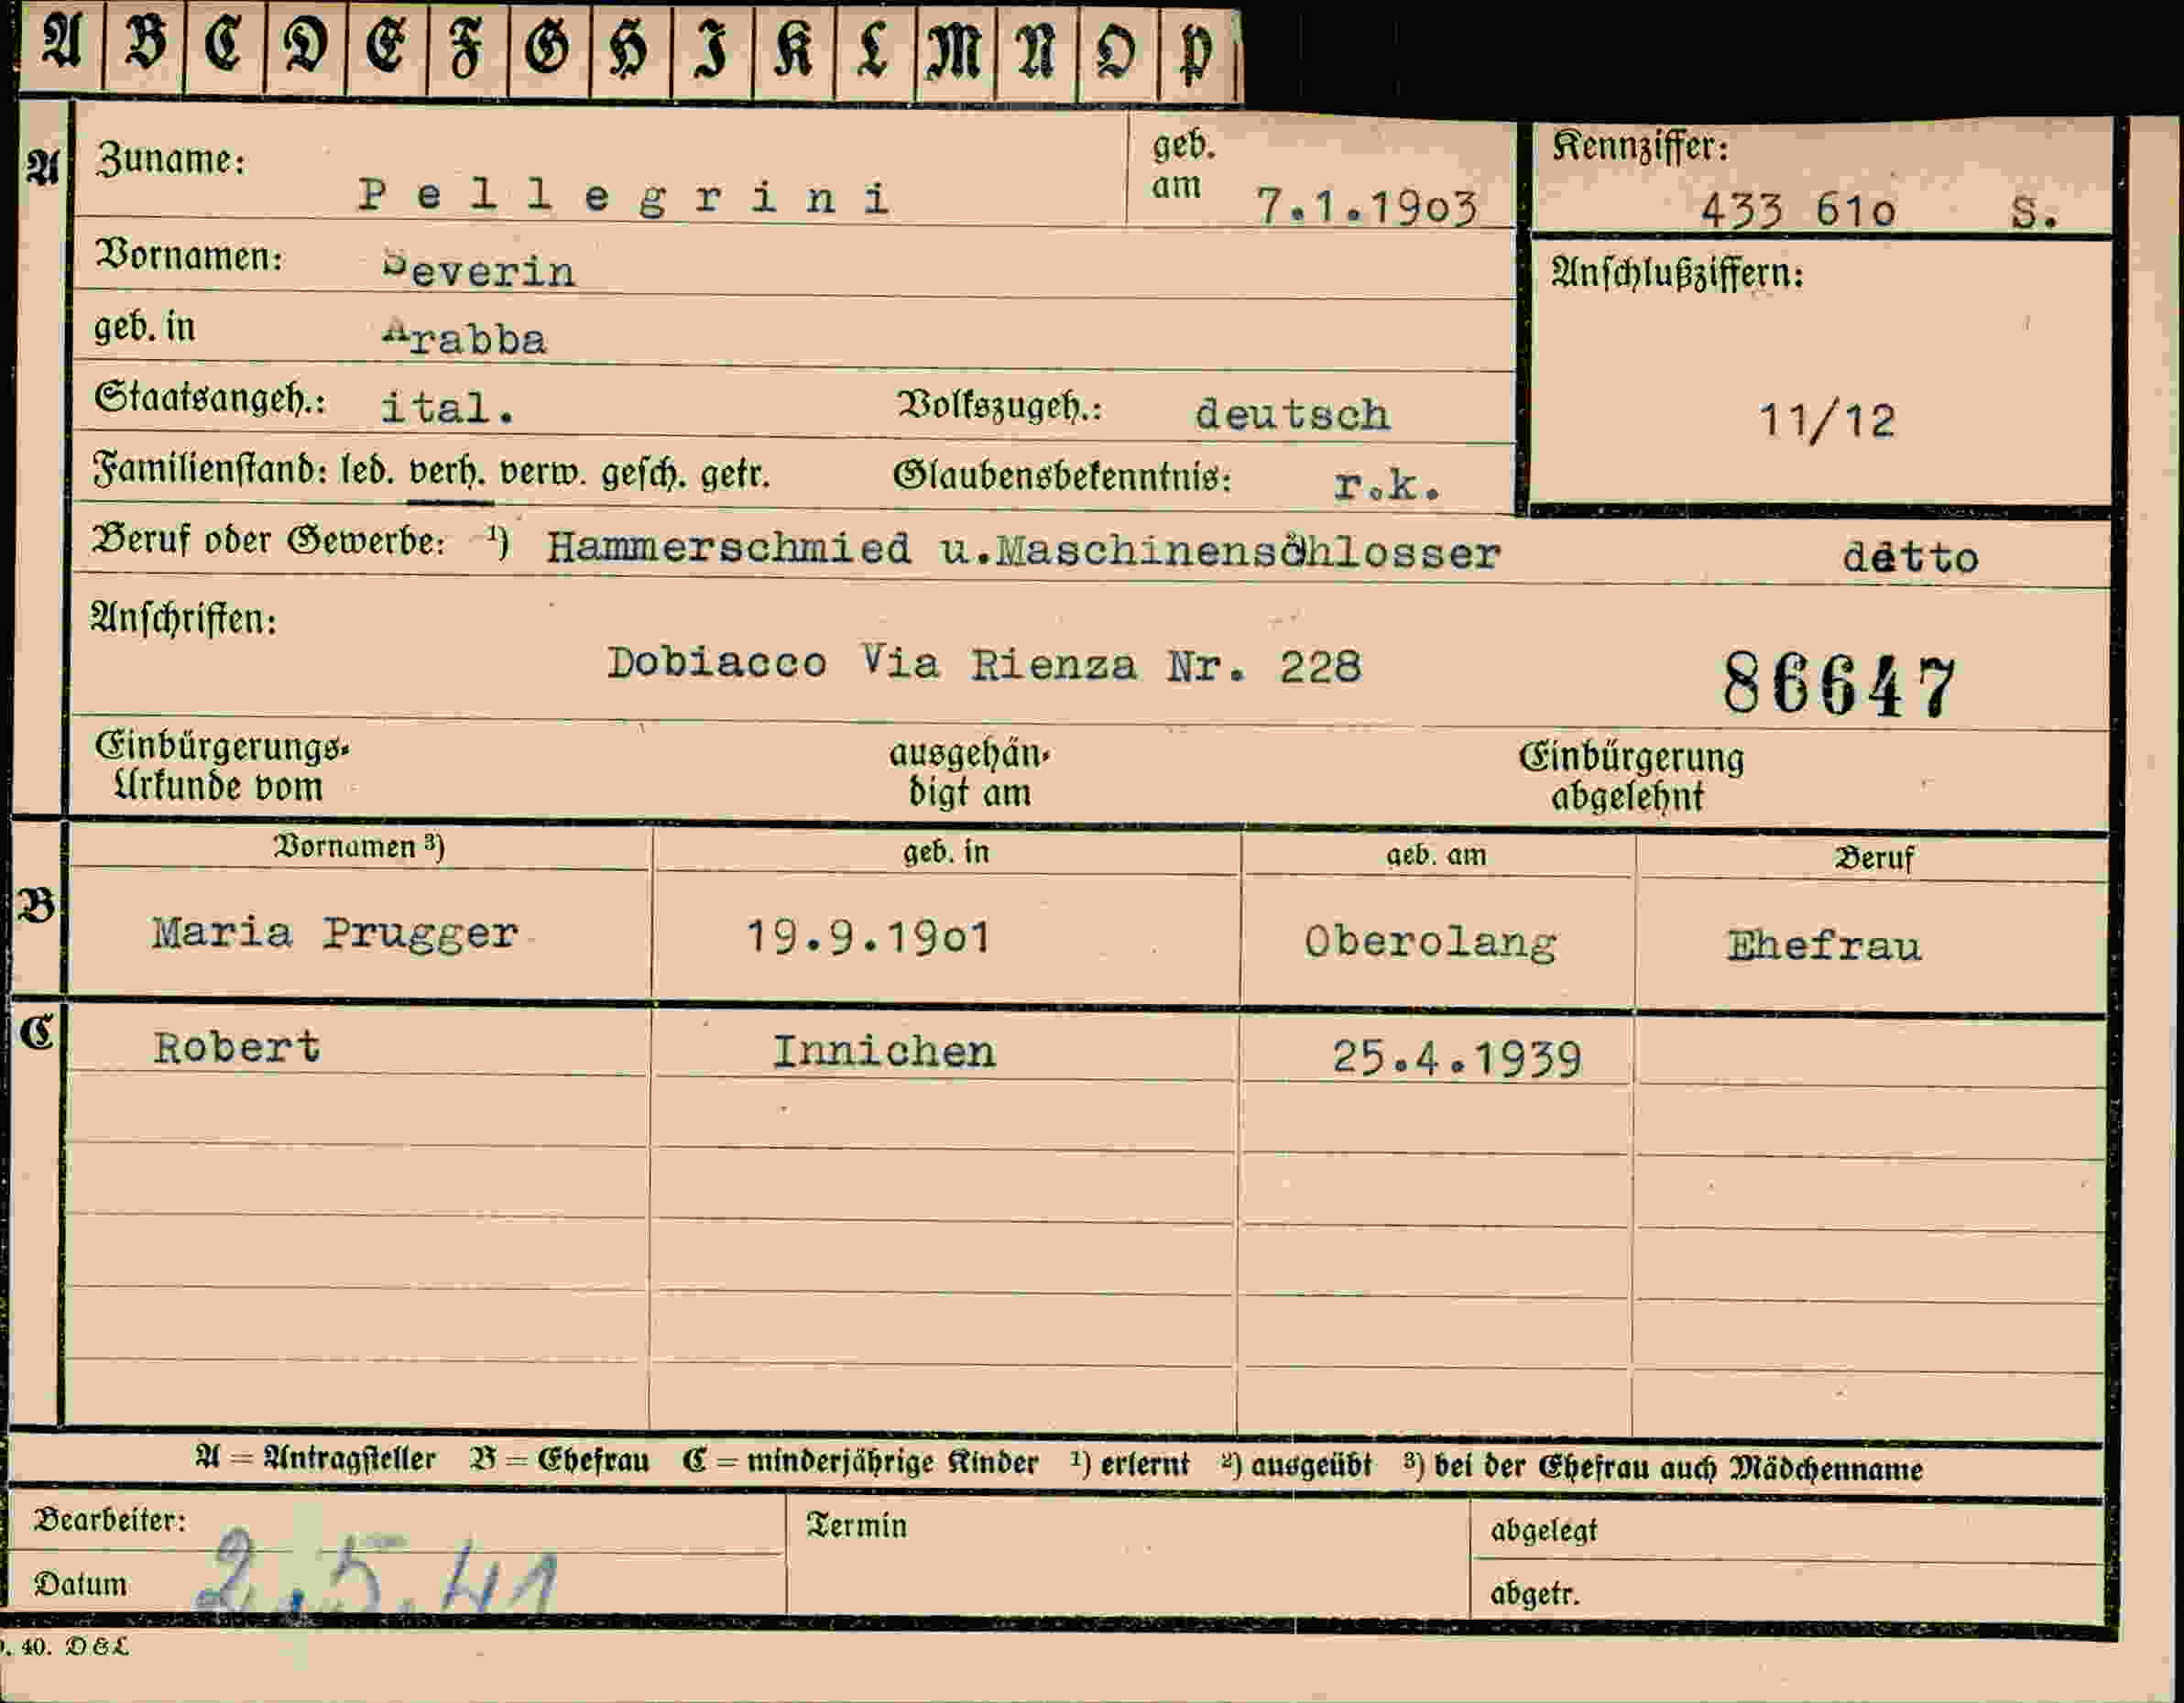 A B C D E F G H I K L M N O P
A Zuname: Pellegrini geb. am 7.1.1903 Kennziffer: 433 610 S.
Vornamen: Severin Anschlußziffern:
geb. in Arabba
Staatsangeh.: ital. Volkszugeh.: deutsch 11/12
Familienstand: led. verh. verw. gesch. getr. Glaubensbekenntnis: r.k.
Beruf oder Gewerbe: ¹) Hammerschmied u.Maschinenschlosser detto
Anschriften:
Dobiacco Via Rienza Nr. 228 86647
Einbürgerungs-Urkunde vom ausgehändigt am Einbürgerung abgelehnt
Vornamen ³) geb. in geb. am Beruf
B Maria Prugger 19.9.1901 Oberolang Ehefrau
C Robert Innichen 25.4.1939
A = Antragsteller B = Ehefrau C = minderjährige Kinder ¹) erlernt ²) ausgeübt ³) bei der Ehefrau auch Mädchenname
Bearbeiter: Termin abgelegt
Datum 2.5.41 abgetr.
. 40. D&L